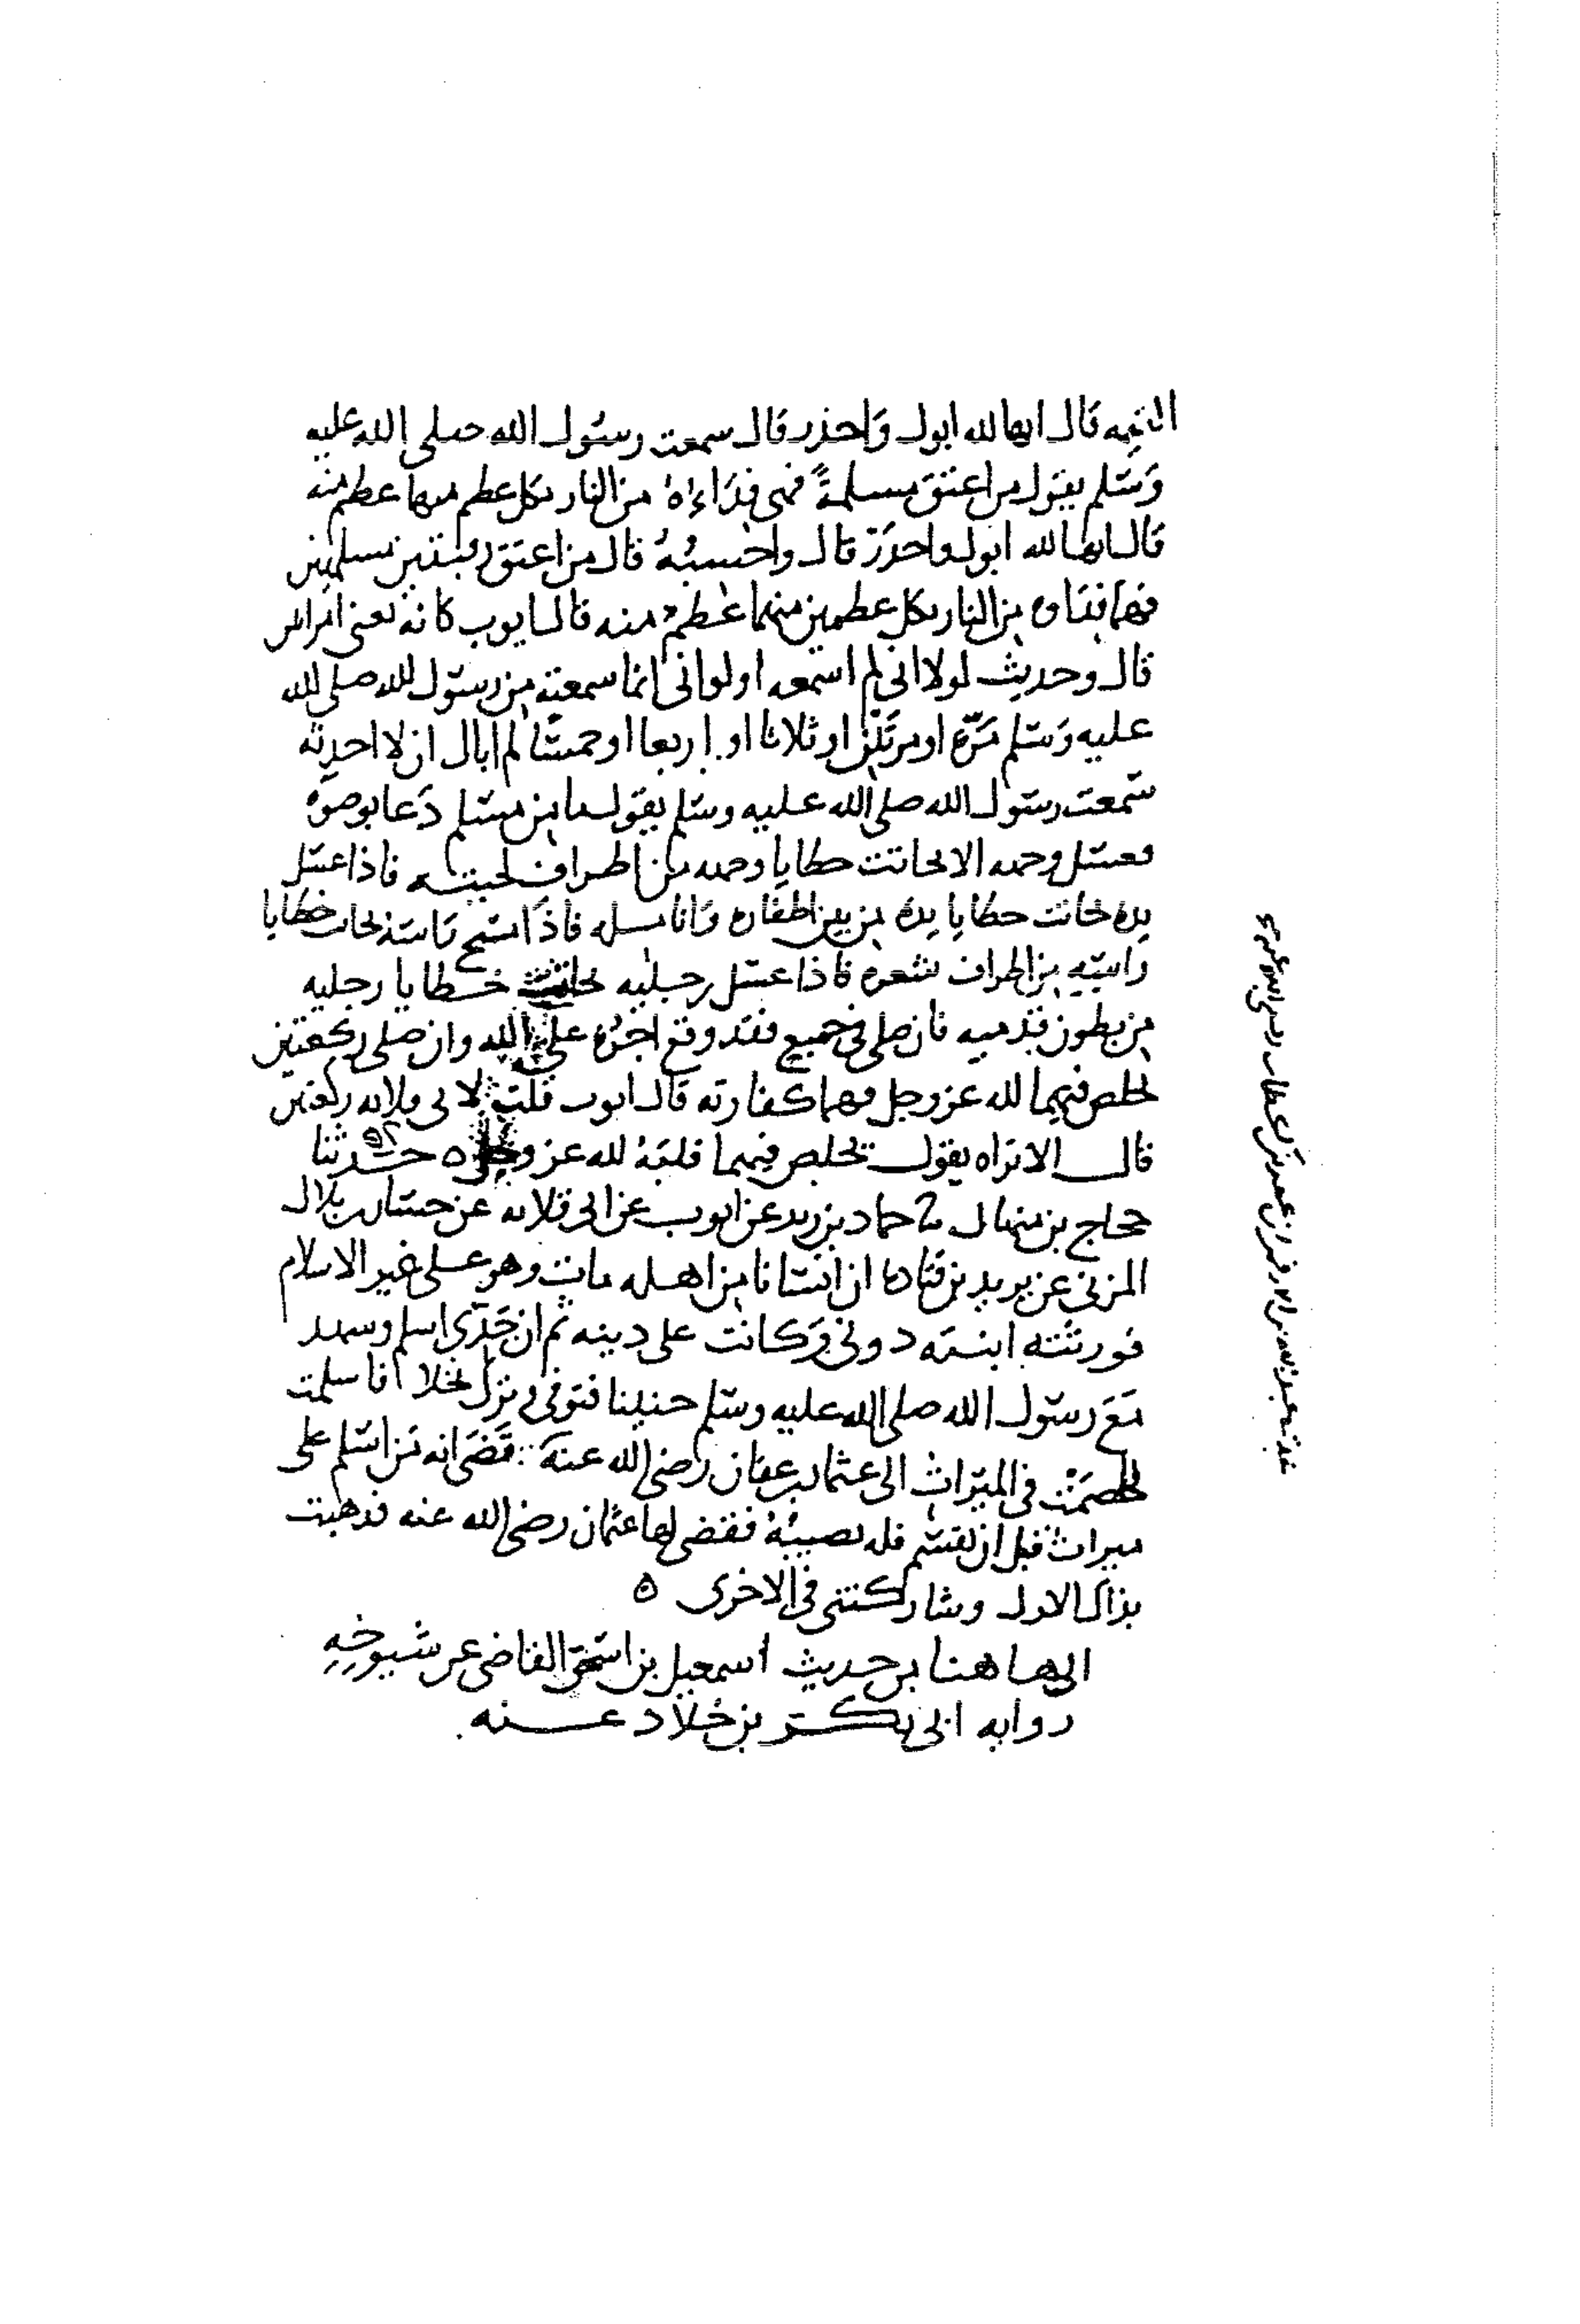 قال ايها لله ابوك واحذر قال سمعت رسول الله صلى الله عليه
وسلم يقول من اعتق مسلمةً فهى فداءه من النار بكل عظم منها عظم منه
قال ايها لله ابوك واحذر قال واحسبُهُ قال من اعتق رقبتين مسلمتين
فهما من النار بكل عظمين منهما عظم منه قال ايوب كانه يعنى امراتين
قال وحديث لولا انى لم اسمعه او لو انى انما سمعته من رسول الله صلى الله
عليه وسلم مَرّة او مرتين او ثلاثا او اربعا او خمسًا لم ابال ان لا احدثه
سمعت رسول الله صلى الله عليه وسلم يقول ما من مسلم دعا بوضوه
فغسل وجهه الا تحاتت خطايا وجهه من اطراف لحيته فاذا غسل
يده تحاتت خطايا يده من بين اظفاره وانامله فاذا مسح راسه تحاتت خطايا
راسه من اطراف شعره فاذا غسل رجليه تحاتت خطايا رجليه
من بطون قدميه فان صلى فى جميع فقد وقع اجرُه على الله وان صلى ركعتين
يخلص فيهما لله عز وجل فهما كفارته قال ايوب قلت لابى قلابه ركعتين
قال الا تراه يقول يخلص فيهما قلبَهُ لله عز وجل ه حدثنا
حجاج بن منهال نا حماد بن زيد عن ايوب عن ابى قلابه عن حسان بن بلال
المزنى عن يزيد بن قتادة ان انسانا من اهله مات وهو على غير الاسلام
فورثته ابنته دونى وكانت على دينه ثم ان جَدّى اسلم وشهد
مَعَ رسول الله صلى الله عليه وسلم حنينا فتوفى وترك نخلا فاسلمت
فخاصمت فى الميراث الى عثمان بن عفان رضى الله عنه قَضَى انه من اسلم على
ميراث قبل ان يقسم فله نصيبُهُ فقضى لها عثمان رضى الله عنه فذهبت
بذاك الاول وشاركتنى فى الاخرى ه
الى ها هنا من حديث اسمعيل بن اسحق القاضى عن شيوخِهِ
روايه ابى بكر بن خلاد عنه